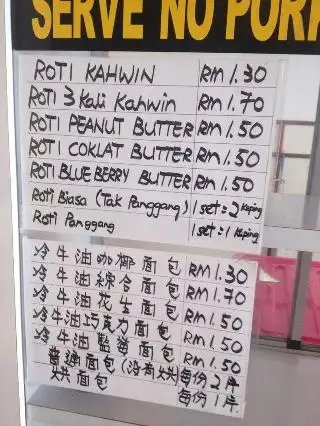 SERVE NO PORK
ROTI KAHWIN RM 1.30
ROTI 3 Kali Kahwin RM 1.70
ROTI PEANUT BUTTER RM 1.50
ROTI COKLAT BUTTER RM 1.50
ROTI BLUEBERRY BUTTER RM 1.50
Roti Biasa (Tak Panggang) 1 set = 2 Keping
Roti Panggang 1 set = 1 Keping
冷牛油咖椰面包 RM 1.30
冷牛油綜合面包 RM 1.70
冷牛油花生面包 RM 1.50
冷牛油巧克力面包 RM 1.50
冷牛油藍莓面包 RM 1.50
普通面包(沒有烘) 每份2片
烘面包 每份1片